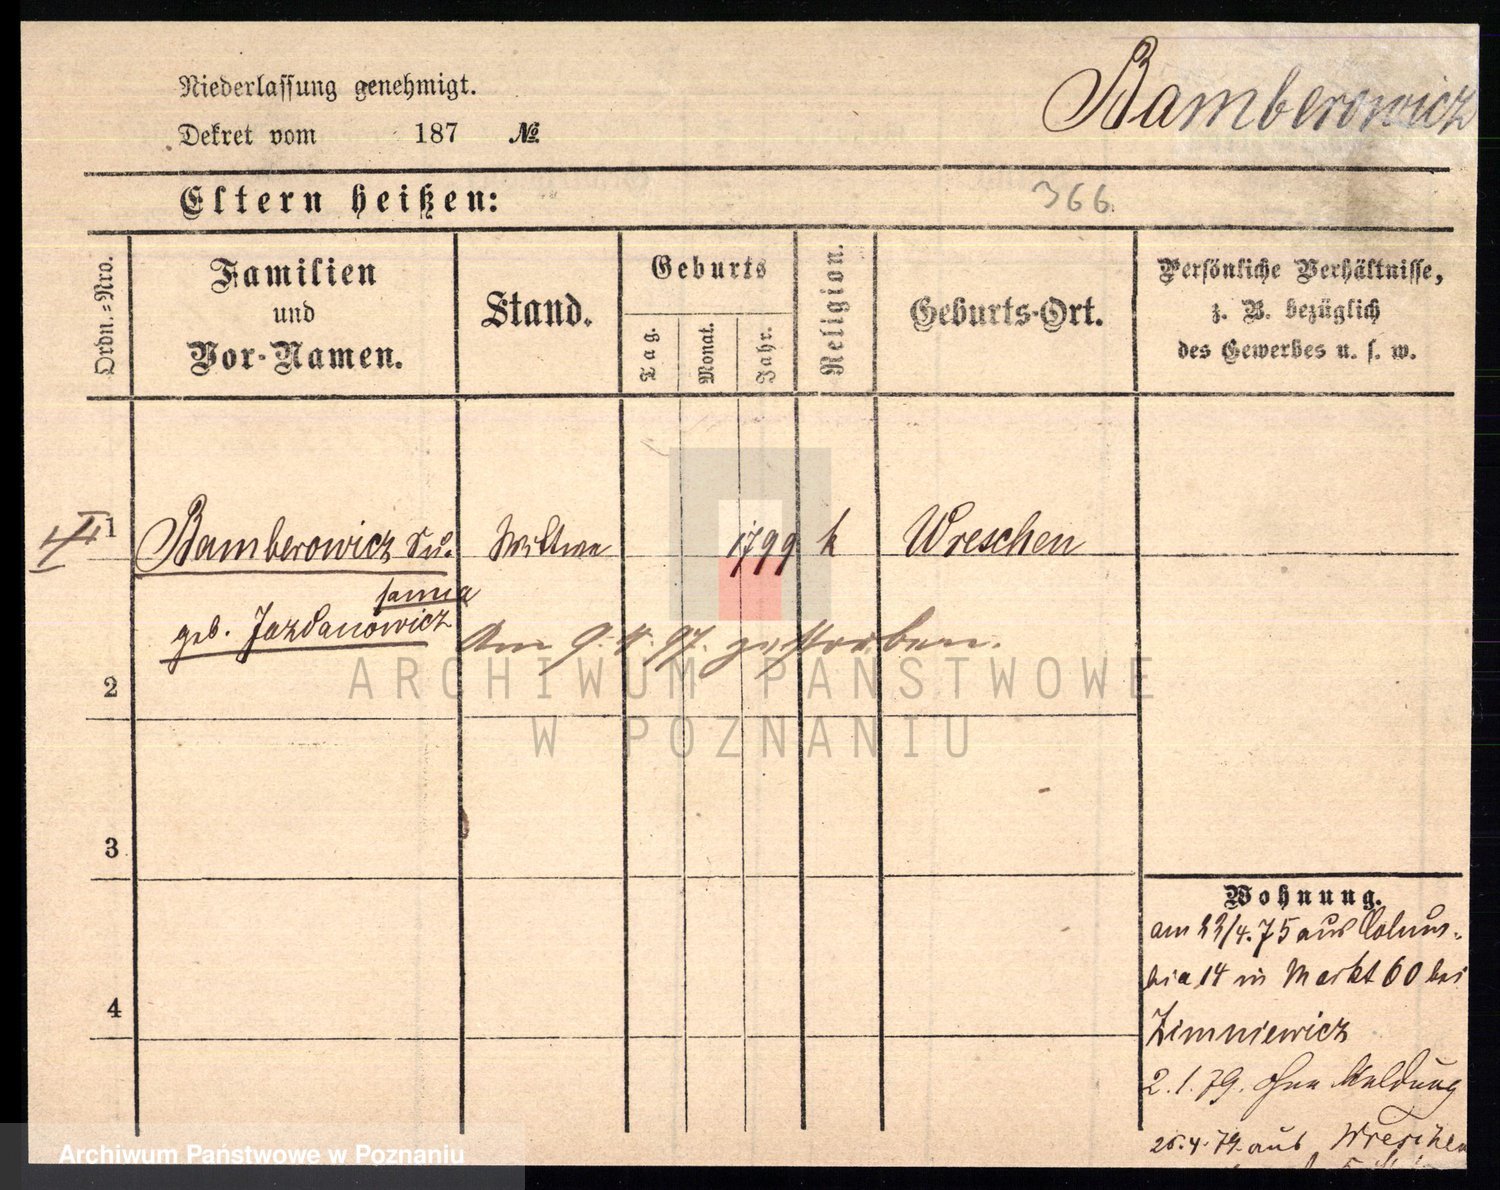 Niederlassung genehmigt.
Bamberowicz
Dekret vom 187 №
Eltern heißen:
366
Ordn.=Nro.
Familien
und
Vor-Namen.
Stand.
Geburts
Tag.
Monat.
Jahr.
Religion.
Geburts-Ort.
Persönliche Verhältnisse,
z. B. bezüglich
des Gewerbes u. s. w.
1
Bamberowicz Su=
sanna
geb. Jazdanowicz
Wittwe
1799
k
Wreschen
gestorben.
2
3
4
Wohnung.
am 23/4.75 aus Colum=
bia 14 in Markt 60 bei
Zimniewicz
2.1.79. ohne Meldung
26.4.79. aus Wreschen
ARCHIWUM PAŃSTWOWE
W POZNANIU
Archiwum Państwowe w Poznaniu